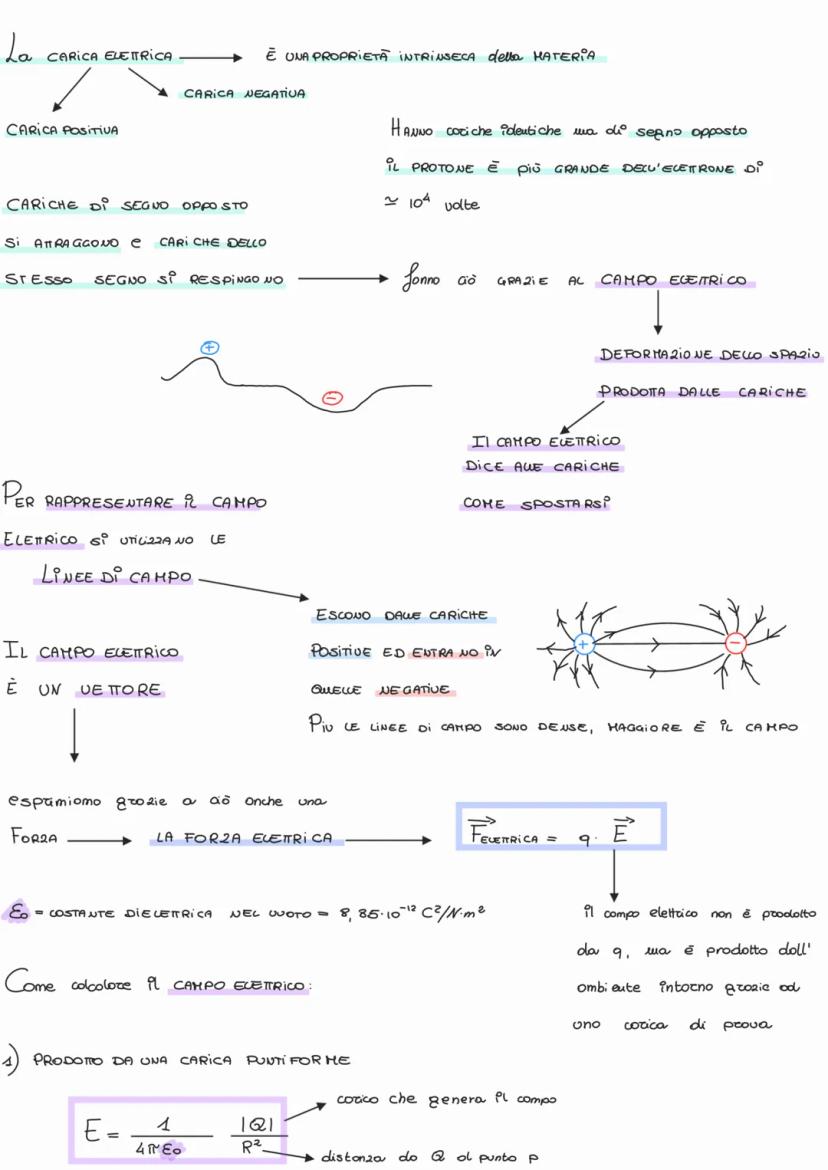 La CARICA ELETTRICA → È UNA PROPRIETÀ INTRINSECA della MATERIA
CARICA NEGATIVA
CARICA POSITIVA
HANNO cariche identiche ma di segno opposto
IL PROTONE È più GRANDE DELL'ELETTRONE DI
≃ 10⁴ volte
CARICHE DI SEGNO OPPOSTO
SI ATTRAGGONO e CARICHE DELLO
STESSO SEGNO SI RESPINGONO → fanno ciò GRAZIE AL CAMPO ELETTRICO
DEFORMAZIONE DELLO SPAZIO
PRODOTTA DALLE CARICHE
+
−
Il CAMPO ELETTRICO
DICE ALLE CARICHE
COME SPOSTARSI
PER RAPPRESENTARE IL CAMPO
ELETTRICO SI UTILIZZANO LE
LINEE DI CAMPO
ESCONO DALLE CARICHE
POSITIVE ED ENTRANO IN
QUELLE NEGATIVE
+ −
PIU LE LINEE DI CAMPO SONO DENSE, MAGGIORE È IL CAMPO
IL CAMPO ELETTRICO
È UN VETTORE
esprimiamo grazie a ciò anche una
FORZA → LA FORZA ELETTRICA → F⃗ELETTRICA = q · E⃗
il campo elettrico non è prodotto
da q, ma è prodotto dall'
ambiente intorno grazie ad
una carica di prova
ε₀ = COSTANTE DIELETTRICA NEL VUOTO = 8,85·10⁻¹² C²/N·m²
Come calcolare il CAMPO ELETTRICO:
1) PRODOTTO DA UNA CARICA PUNTIFORME
E = 1/4πε₀ |Q|/R²
carica che genera il campo
distanza da Q al punto P